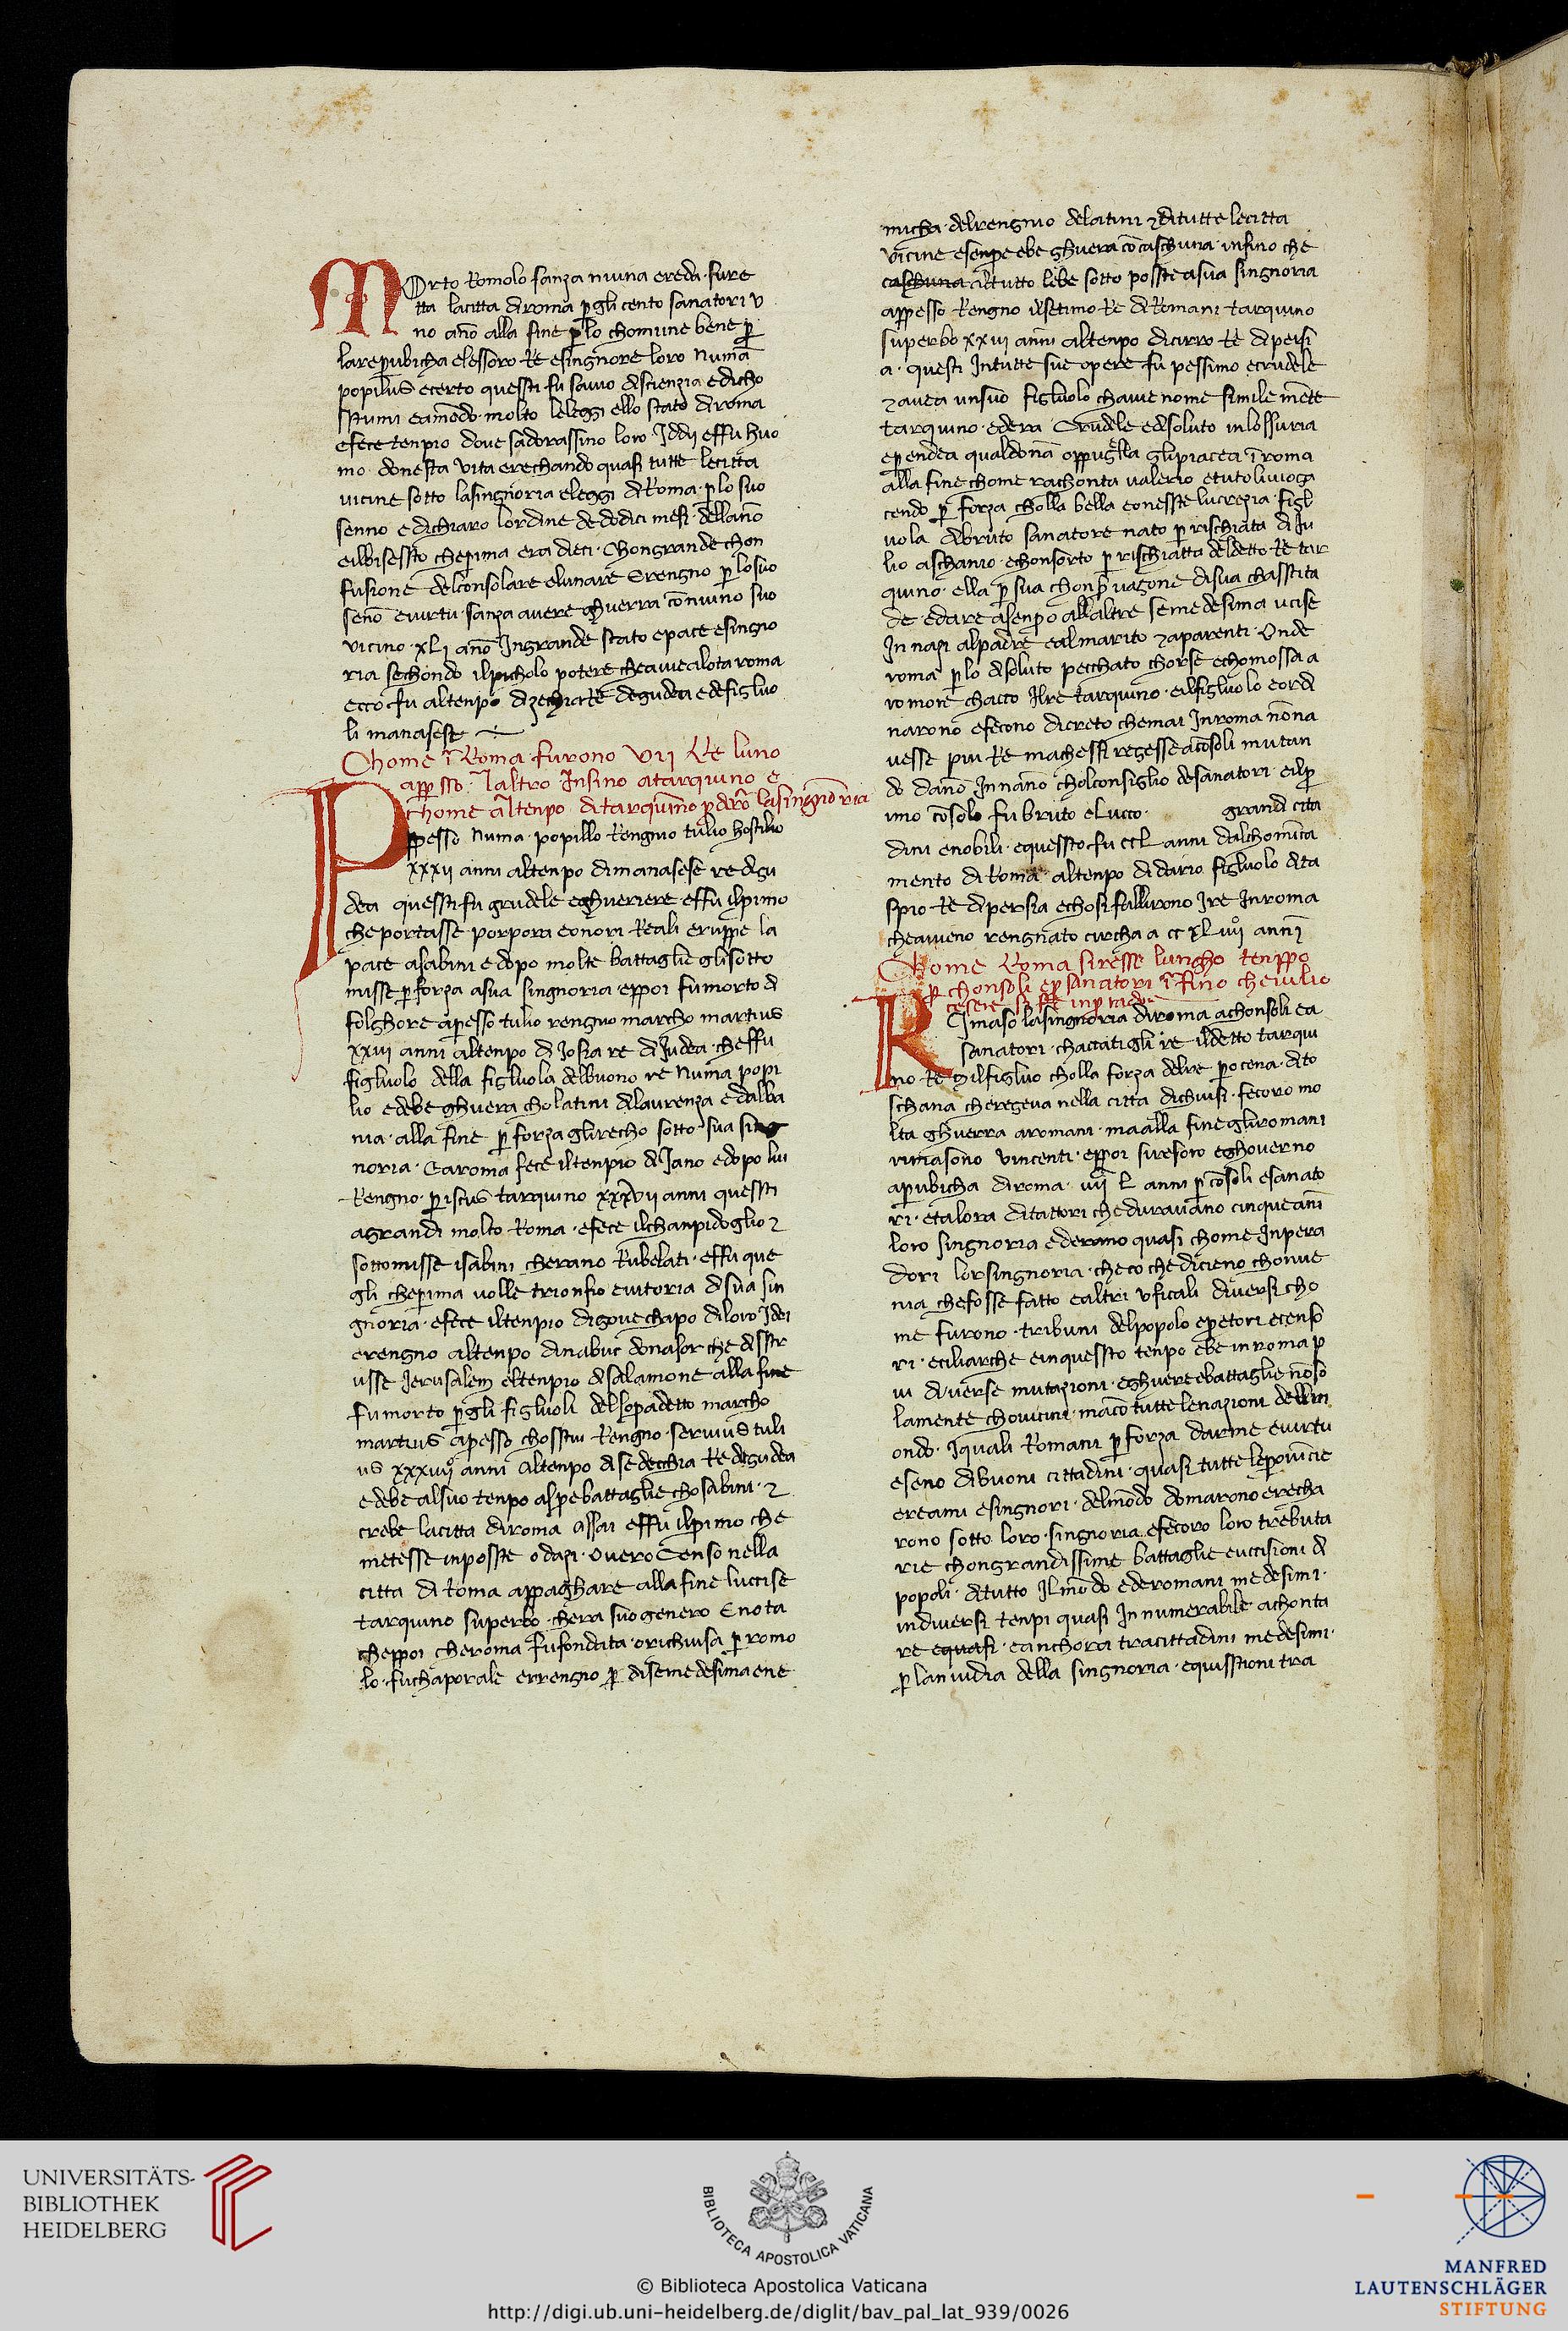 MOrto Romolo sanza niuna ereda · fu re
tta la citta di roma p̲ gli cento sanatori v
no ano alla fine p̲ lo chomune bene p̲
la rep̲ubicha elessoro re e singnore loro Numa
popilus e certo questi fu savio di scienzia e di cho
stumi e amendo molto le leggi e llo stato di roma
e fece tenpio dove sadorassino loro · Iddij e ffu huo
mo · donesta vita e rechando quasi tutte le citta
vicine sotto la singnioria e leggi di Roma · p̲ lo suo
senno e dichiaro lordine de dodici mesi · dellano
e il bisessto che p̲ima era dieci · Chon grande chon
fusione del consolare e lunare E rengno p̲ lo suo
seno e virtu · sanza avere ghuerra con niuno suo
vicino · xlj ano In grande stato e pace e singno
ria sechondo il picholo potere che avie alota roma
e cco fu al tenpo di zechia re de gudea e de figluo
li manasese
Chome i̅ Roma · furono vij Re luno
app̲sso laltro Insino a tarquino e
chome al tenpo di tarquino p̲dro la singnoria
Appesso Numa · popillo Rengnio tulio hostilio
xxxij anni al tenpo di manasese re di gu
dea questi fu grudele e ghueriere e ffu il p̲imo
che portasse porpora e onori Reali e ruppe la
pace a sabini e dopo molte battaglie gli sotto
misse p̲ forza a sua singnoria e ppoi fu morto di
folghore apesso tulio rengno marcho martius
xxiij anni al tenpo di Josia re di Judea · che ffu
figluolo della figluola del buono re Numa popi
lio ed ebe ghuera cho latini di laurenza e dalba
nia · alla fine p̲ forza gli recho sotto · sua sing
noria · E a roma fece il tenpio di Jano e dopo lui
Rengno · p̲iscus tarquino xxxvij anni questi
agrandi molto Roma · e fece il chanpidoglio ⁊
sottomisse i sabini cherano Rubelati · e ffu que
gli che p̲ima volle trionfio e vitoria di sua sin
gnoria · e fece il tenpio di gove chapo di loro Idei
e rengno al tenpo di nabuc donasor che disstr
usse Jerusalem e l tenpio di salamone alla fine
fu morto p̲ gli figluoli del sopadetto marcho
martius apesso chosstui Rengno · servius tuli
us xxxiiij anni al tenpo di sedechia Re di gudea
ed ebe al suo tenpo aspe battaglie cho sabini · ⁊
crebe la citta di roma assai e ffu il p̲imo che
metesse in posste o dazi · overo Censo nella
citta di Roma a ppaghare alla fine luccise
tarquino superbo · chera suo genero E nota
che ppoi che roma fu fondata · o richiusa p̲ romo
lo · fu chaporale e rrengno p̲ di se medesima e ne
micha · del rengnio de latini ⁊ di tutte le citta
vicine e senp̲e ebe ghuera co̅ caschuna · insino che
caschuna al tutto lebe sotto posste a sua singnoria
appesso Rengno il setimo Re di Romani tarquino
superbo xxvj anni al tenpo di cirro Re di persi
a · questi In tutte sue opere fu pessimo e crudele
⁊ avea un suo figluolo chavie nome simile mente
tarquino · ed era Crudele e disoluto in lossuria
e p̲endea qual dona o ppugella gli piacea i̅ roma
alla fine chome rachonta valerio e tuto livio ga
cendo p̲ forza cholla bella e onesste lucrezia · figl
uola di bruto sanatore nato p̲ rischiata di Ju
lio aschanio · e chonsorto p̲ rischiatta del detto Re tar
quino · ella p̲ sua chonp̲vagone di sua chasstita
de · e dare asenpo all altre se medesima ucise
In nazi al padre e al marito ⁊ a parenti · Onde
roma p̲ lo disoluto pecchato chorse e chomossa a
romore chacco Il re tarquino · e il figluolo e ordi
narono e fecono dicreto che mai In roma no̅ na
vesse piu Re ma che ssi regesse a co̅soli mutan
do dano In nano chol consiglio de sanatori · e il p̲
imo co̅solo fu bruto e lucco · grandi cita
dini e nobili · e questo · fu ccl anni dal chominca
mento di Roma · al tenpo di dario figluolo di ta
spio Re di persia e chosi fallirono I re In roma
che avieno rengnato circha a cc xliiij anni
Chome Roma si resse lungho tenppo
p̲ chonsoli e p̲ sanatori i̅ fino che iulio
cesere si fe inp̲ador
RImaso la singnoria di roma a chonsoli e a
sanatori · chaccati gli re il detto tarqui
no Re ⁊ il figluo cholla forza del re porcena · di to
schana che regeva nella citta di chiusi · fecoro mo
lta ghuerra a romani · ma alla fine gli romani
rimasono vincenti · e ppoi si resoro e ghoverno
a p̲ubicha di roma · iiij l anni p̲ co̅soli e sanato
ri · e talora ditattori che duravano cinque ani
loro singnoria ed erano quasi chome Inpera
dori lor singnoria · che co che dicieno chonve
nia che fosse fatto e altri uficali diversi cho
me furono · tribuni del popolo e p̲etori e censo
ri · e ciliarche e in quessto tenpo ebe in roma p
iu diverse mutazioni · e ghuere e battaglie no̅ so
lamente cho vicini · ma co̅ tutte le nazioni dell m
ondo · I quali Romani p̲ forza darme e virtu
e seno di buoni cittadini · quasi tutte le p̲ovincie
e reami e singnori · del mo̅do domarono e recha
rono sotto loro · singnoria e fecoro loro trebuta
rie chon grandissime battaglie e uccisioni di
popoli · di tutto Il mo̅do e de romani medesimi ·
in diversi tenpi quasi In numerabile a chonta
re equasi · e anchora tra cittadini medesimi ·
p̲ la nvidia della singnoria · e quisstioni tra
UNIVERSITÄTS-
BIBLIOTHEK
HEIDELBERG
BIBLIOTECA APOSTOLICA VATICANA
© Biblioteca Apostolica Vaticana
http://digi.ub.uni-heidelberg.de/diglit/bav_pal_lat_939/0026
MANFRED
LAUTENSCHLÄGER
STIFTUNG